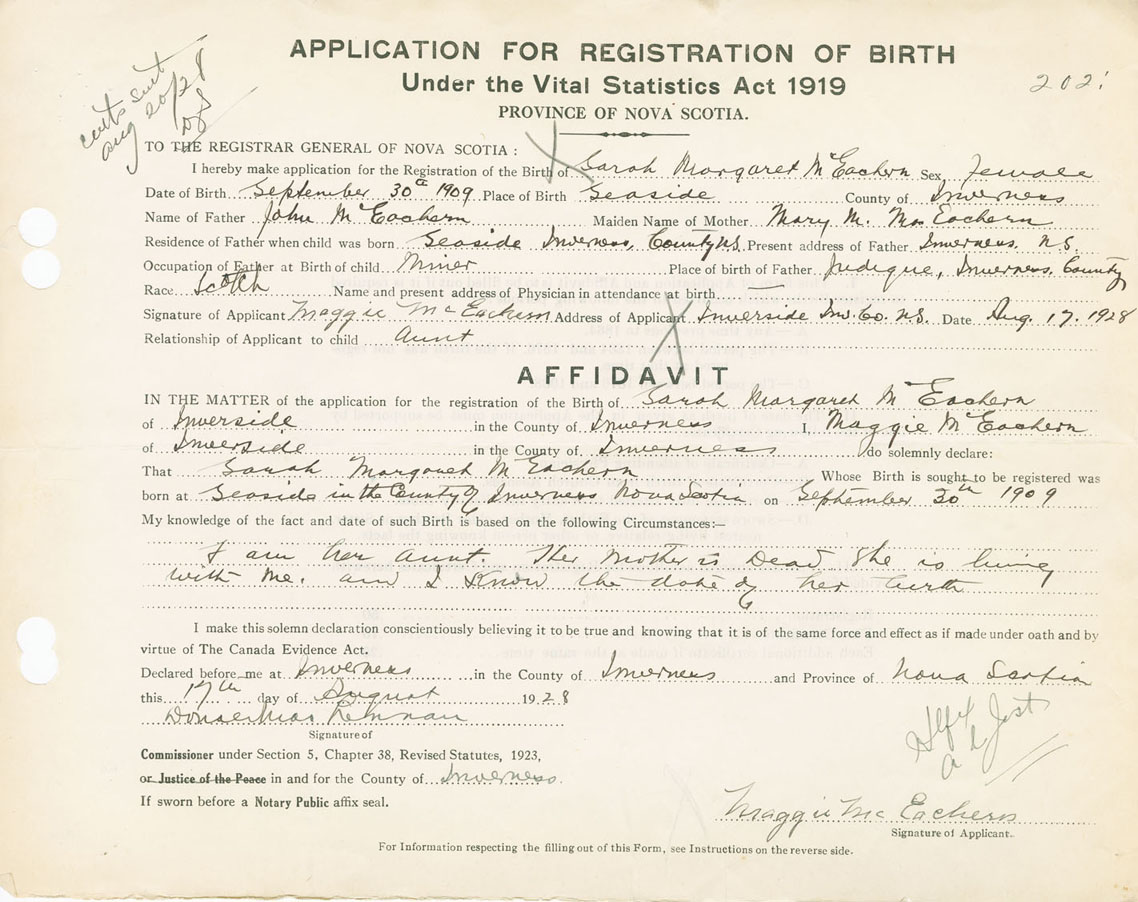 APPLICATION FOR REGISTRATION OF BIRTH
Under the Vital Statistics Act 1919
PROVINCE OF NOVA SCOTIA.
202
Aug 20/28
TO THE REGISTRAR GENERAL OF NOVA SCOTIA :
I hereby make application for the Registration of the Birth of Sarah Margaret McEachern Sex Female
Date of Birth September 30th 1909 Place of Birth Seaside County of Inverness
Name of Father John McEachern Maiden Name of Mother Mary M. MacEachern
Residence of Father when child was born Seaside Inverness County N.S. Present address of Father Inverness. N.S.
Occupation of Father at Birth of child Miner Place of birth of Father Judique, Inverness County
Race Scotch Name and present address of Physician in attendance at birth —
Signature of Applicant Maggie McEachern Address of Applicant Inverside Inv. Co. N.S. Date Aug. 17. 1928
Relationship of Applicant to child Aunt
AFFIDAVIT
IN THE MATTER of the application for the registration of the Birth of Sarah Margaret McEachern
of Inverside in the County of Inverness I, Maggie McEachern
of Inverside in the County of Inverness do solemnly declare:
That Sarah Margaret McEachern Whose Birth is sought to be registered was
born at Seaside in the County of Inverness Nova Scotia on September 30th 1909
My knowledge of the fact and date of such Birth is based on the following Circumstances:—
I am her Aunt. Her Mother is Dead She is living
with me. and I Know the date of her birth
I make this solemn declaration conscientiously believing it to be true and knowing that it is of the same force and effect as if made under oath and by
virtue of The Canada Evidence Act.
Declared before me at Inverness in the County of Inverness and Province of Nova Scotia
this 17th day of August 1928
Signature of
Commissioner under Section 5, Chapter 38, Revised Statutes, 1923,
or Justice of the Peace in and for the County of Inverness.
If sworn before a Notary Public affix seal.
Maggie McEachern
Signature of Applicant.
For Information respecting the filling out of this Form, see Instructions on the reverse side.